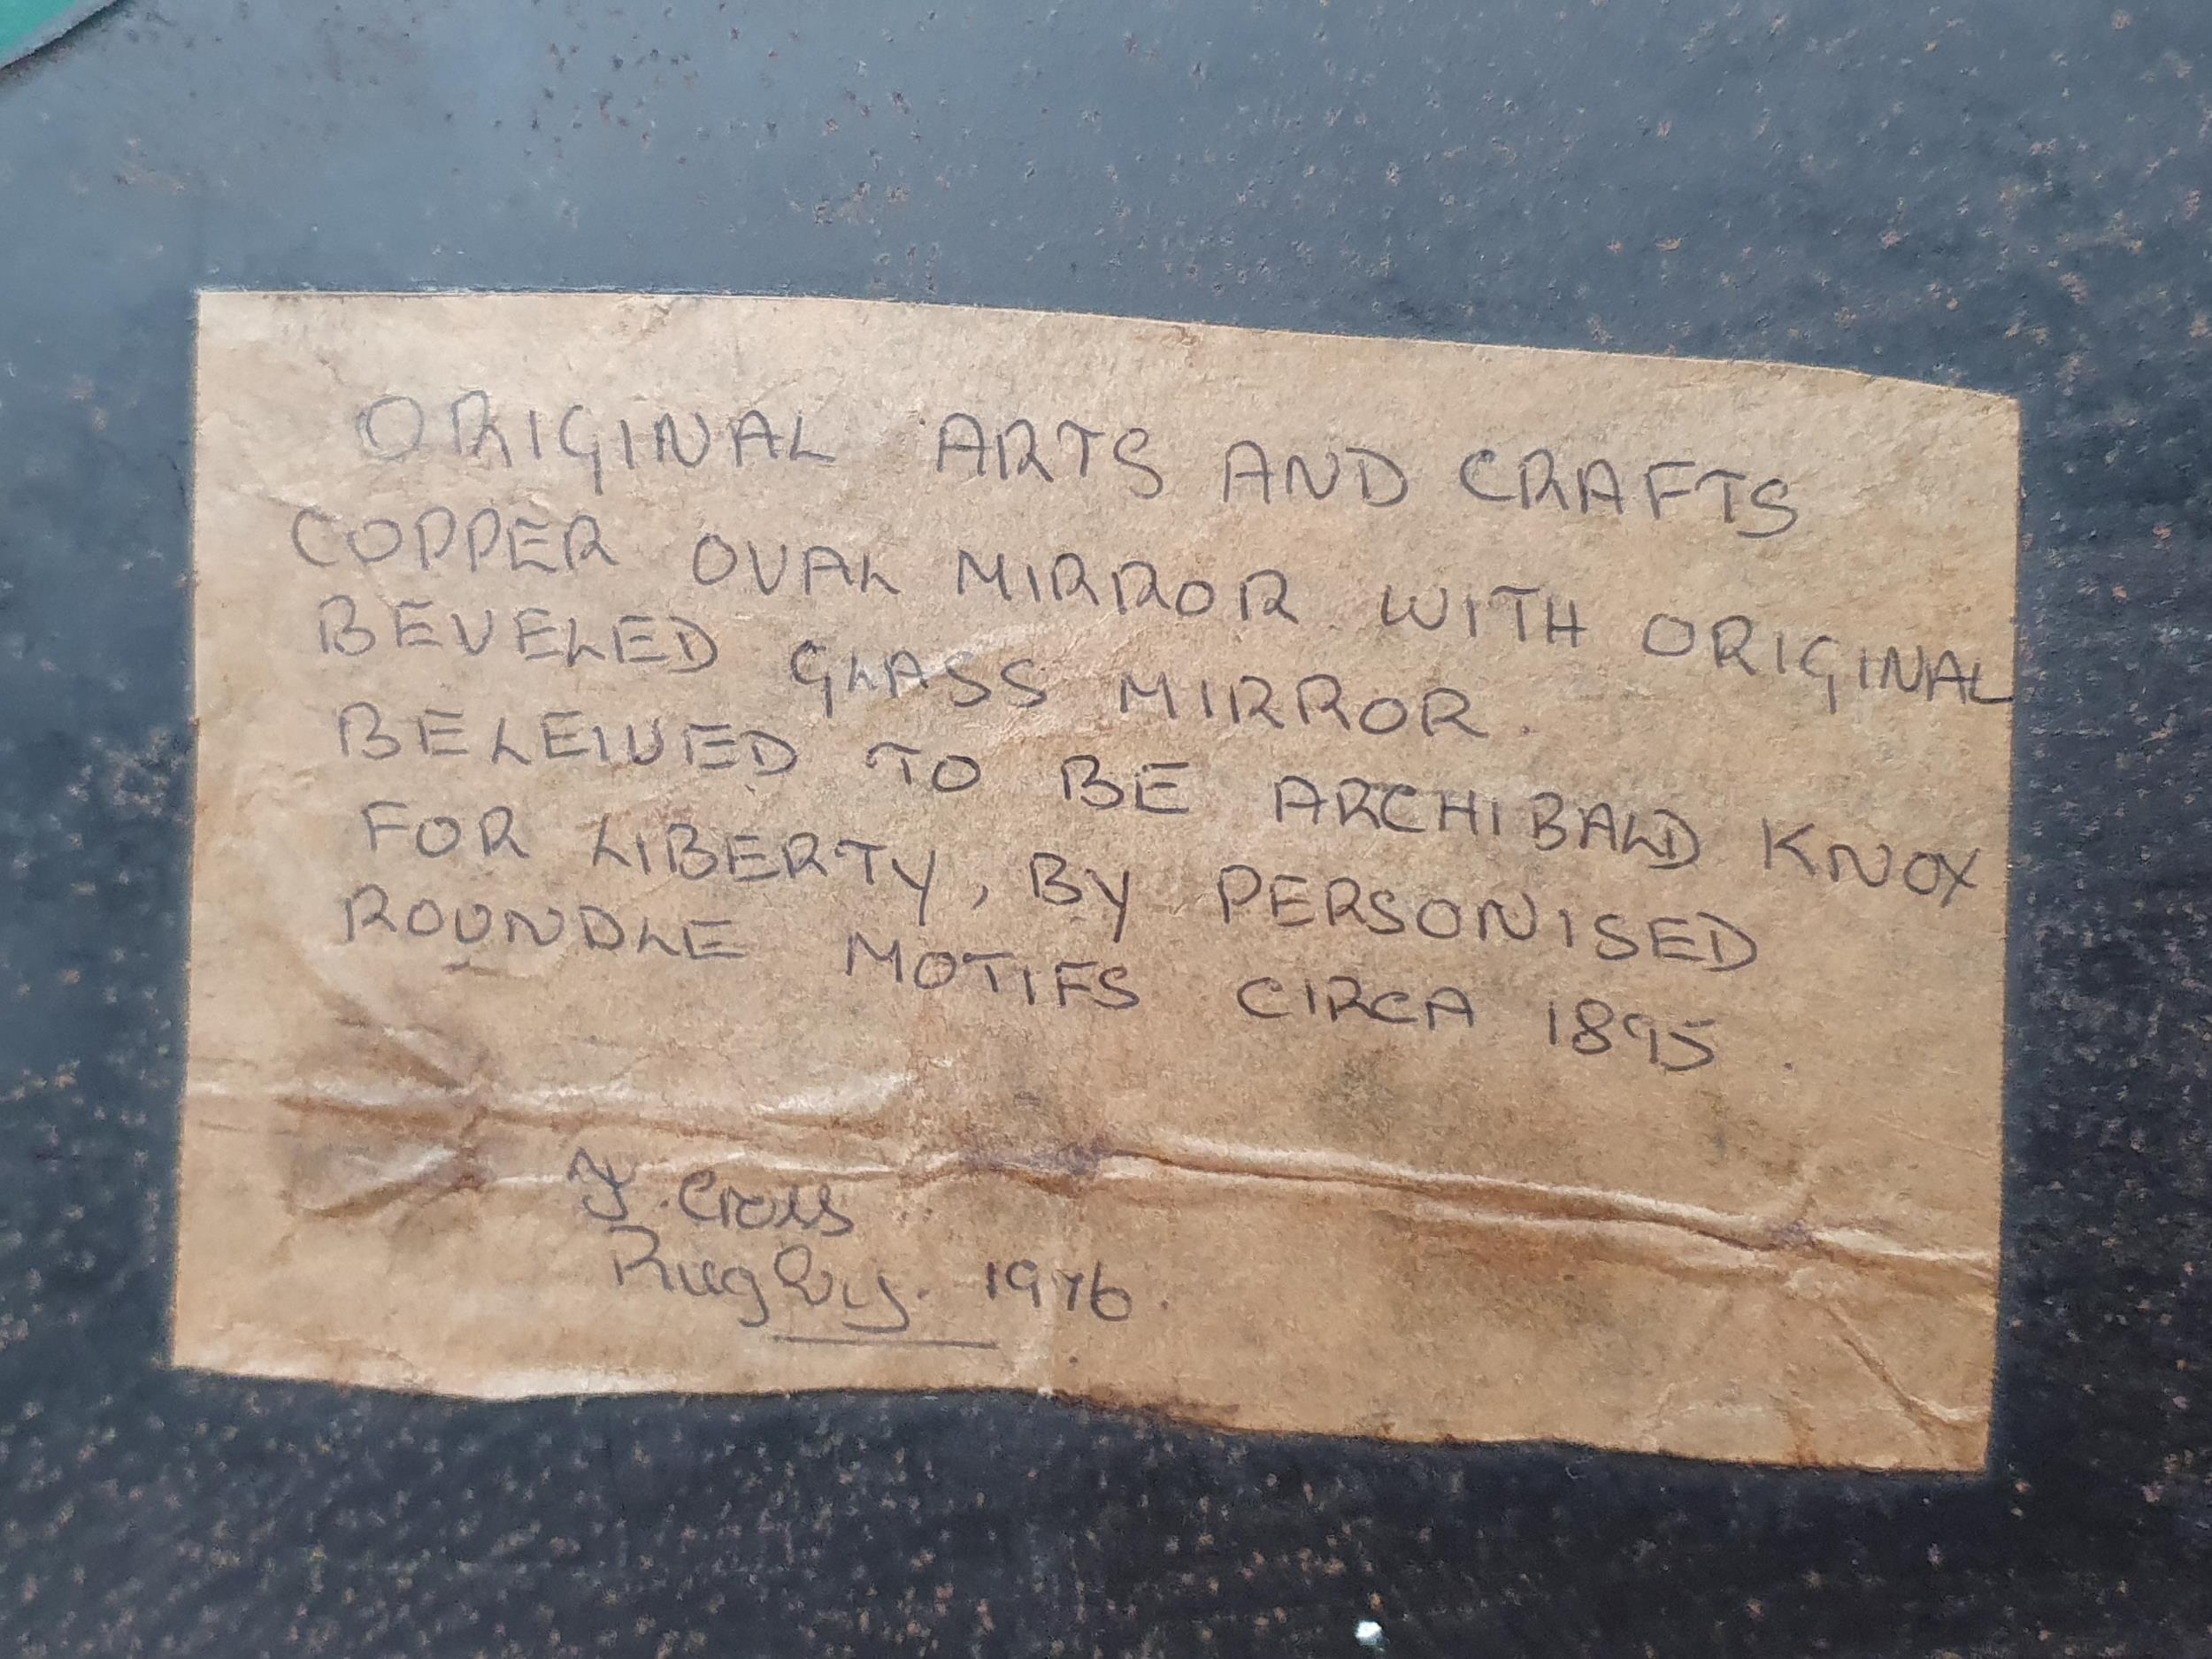 ORIGINAL ARTS AND CRAFTS
COPPER OVAL MIRROR WITH ORIGINAL
BEVELED GLASS MIRROR.
BELEIVED TO BE ARCHIBALD KNOX
FOR LIBERTY, BY PERSONISED
ROUNDLE MOTIFS CIRCA 1895.
Cross
Rugby. 1976.